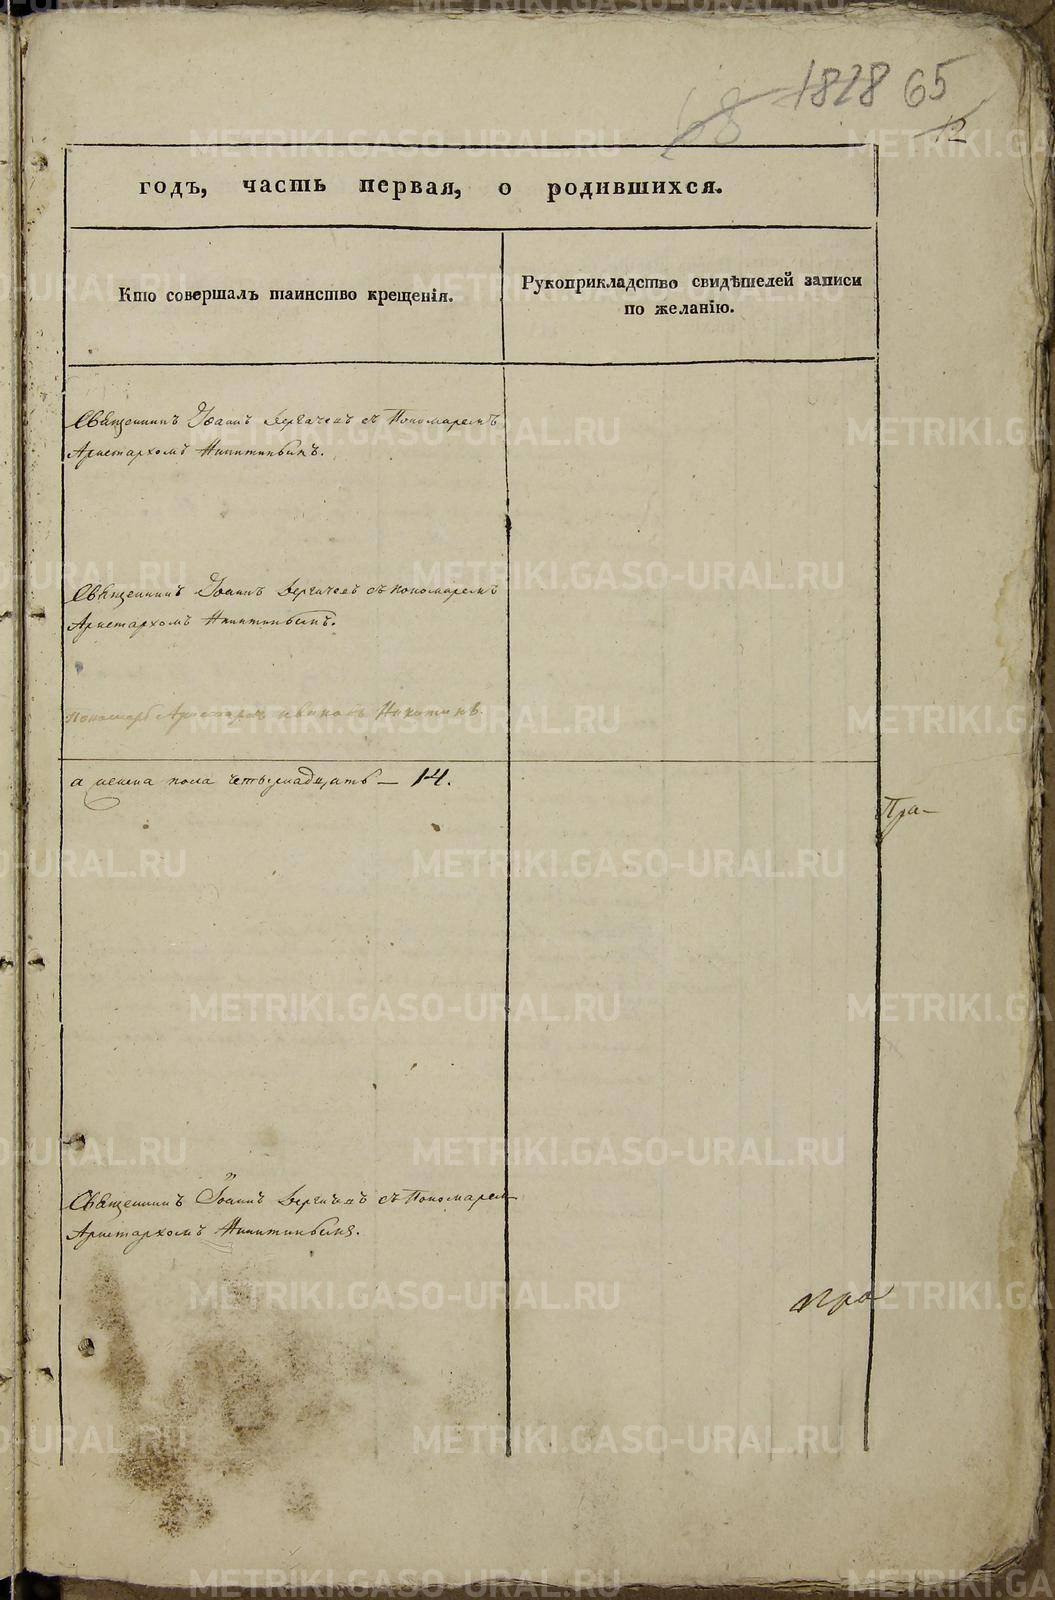 1828 65
68
12
годъ, часть первая, о родившихся.
Кто совершалъ таинство крещенія.
Рукоприкладство свидѣтелей записи
по желанію.
Священникъ Іоаннъ Дергачевъ съ Пономаремъ
Аристархомъ Никитинымъ.
Священникъ Іоаннъ Дергачевъ съ пономаремъ
Аристархомъ Никитинымъ.
Пономарь Аристархъ Никитинъ.
а женска пола четырнадцать — 14.
Пра-
Священникъ Іоаннъ Дергачевъ съ Пономарем
Аристархомъ Никитинымъ.
METRIKI.GASO-URAL.RU